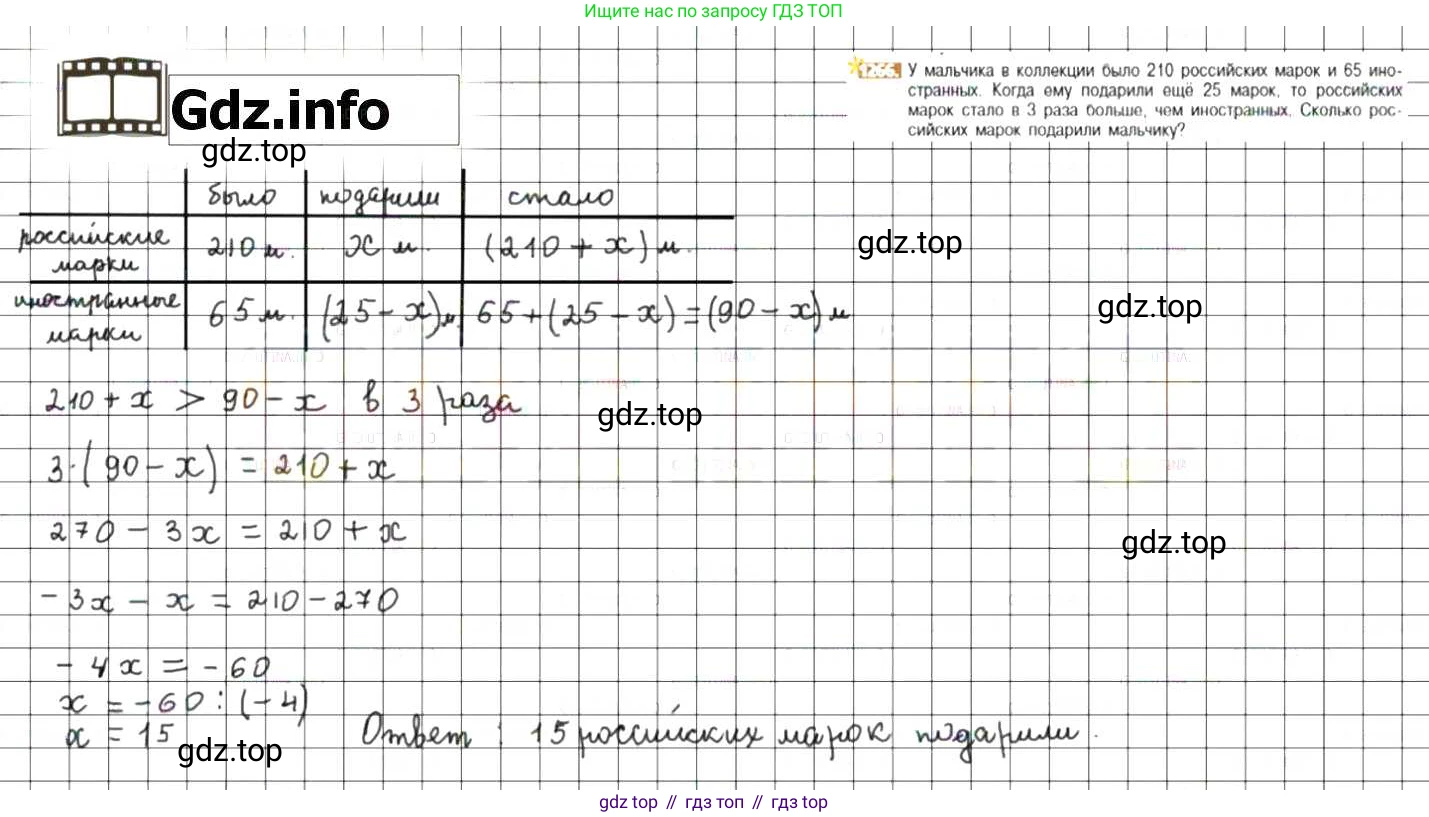 Ищите нас по запросу ГДЗ ТОП
1266. У мальчика в коллекции было 210 российских марок и 65 ино-
странных. Когда ему подарили ещё 25 марок, то российских
марок стало в 3 раза больше, чем иностранных. Сколько рос-
сийских марок подарили мальчику?
Gdz.info
gdz.top
было подарили стало
российские марки 210 м. x м. (210 + x) м.
gdz.top
иностранные марки 65 м. (25 - x) м 65 + (25 - x) = (90 - x) м
gdz.top
210 + x > 90 - x в 3 раза
gdz.top
3·(90 - x) = 210 + x
270 - 3x = 210 + x
gdz.top
- 3x - x = 210 - 270
- 4x = - 60
x = - 60 : (- 4)
x = 15
gdz.top
Ответ : 15 российских марок подарили.
gdz top // гдз топ // gdz top